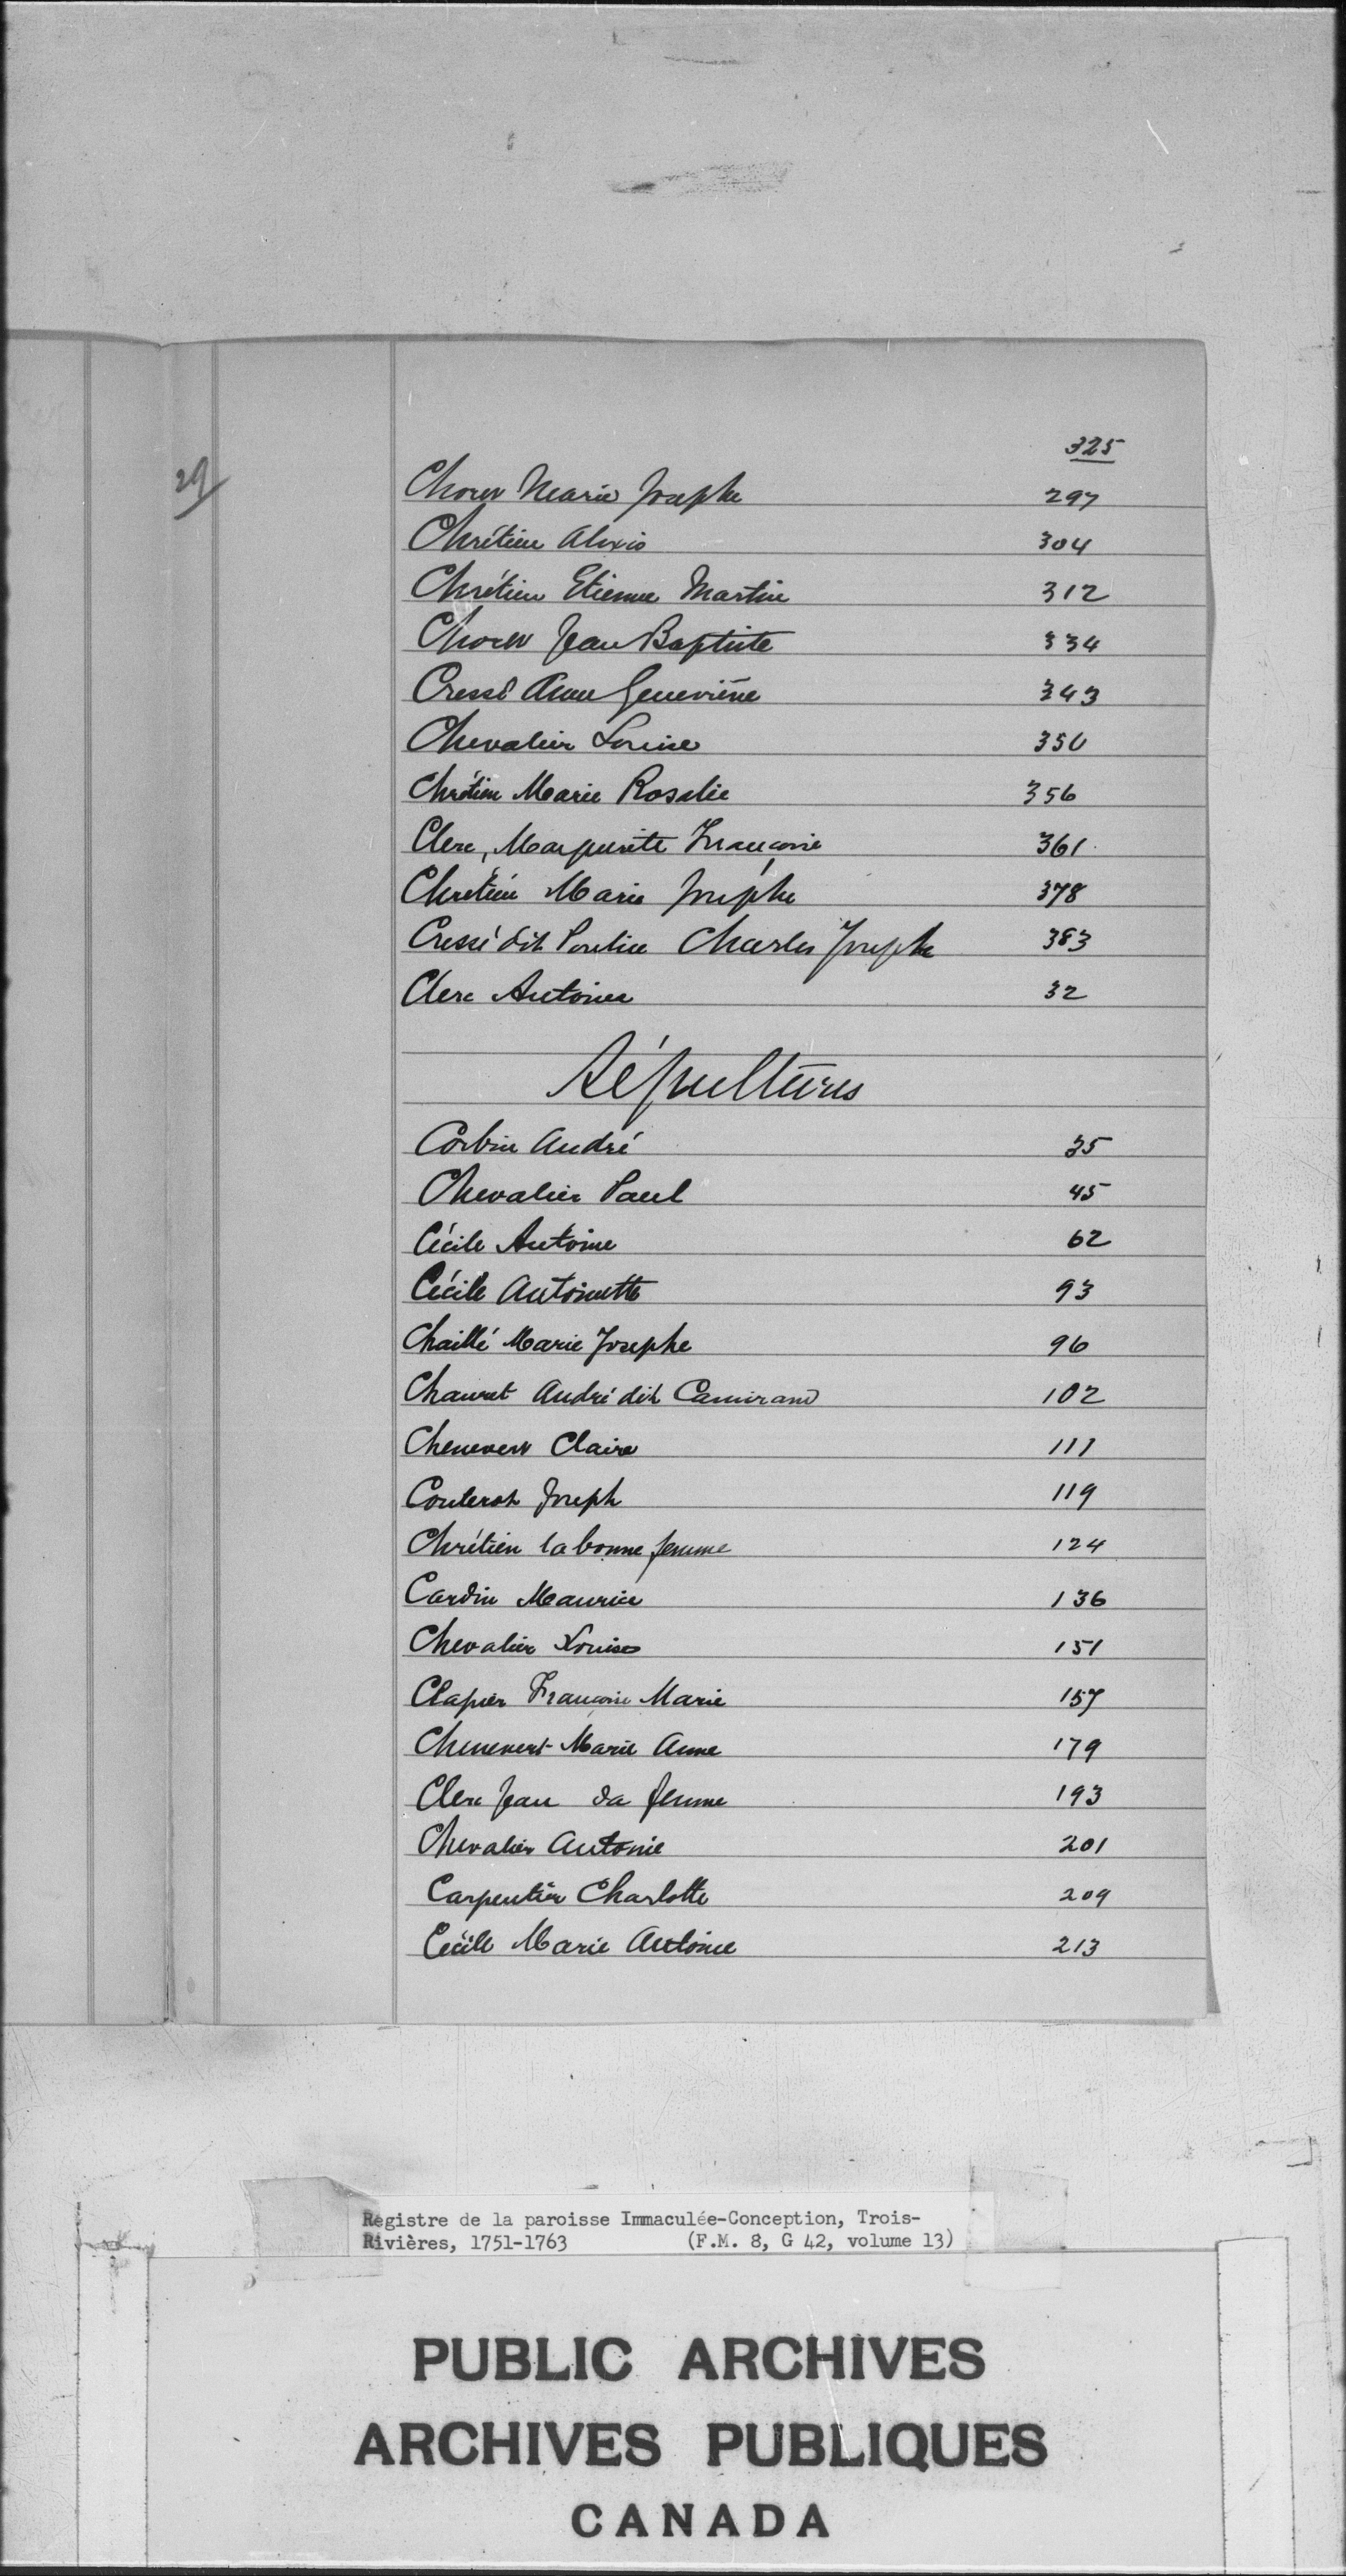 325
29
Chorer Marie Josephe 297
Chrétien Alexis 304
Chrétien Etienne Martin 312
Chorer Jean Baptiste 334
Cressé Anne Geneviève 343
Chevalier Louise 350
Chrétien Marie Rosalie 356
Clerc, Marguerite Françoise 361
Chretien Marie Josephe 378
Cressé dit Charles Joseph 383
Clerc Antoine 32
Sépultures
Corbin André 35
Chevalier Paul 45
Cécile Antoine 62
Cécile Antoinette 93
Chaillé Marie Josephe 96
Chauret André dit Camirand 102
Chenevert Claire 111
Couterot Joseph 119
Chrétien la bonne femme 124
Cardin Maurice 136
Chevalier Louise 151
Clapier Françoise Marie 157
Chenevert Marie Anne 179
Clerc Jean sa femme 193
Chevalier Antonie 201
Carpentier Charlotte 209
Cécile Marie Antoine 213
Registre de la paroisse Immaculée-Conception, Trois-
Rivières, 1751-1763 (F.M. 8, G 42, volume 13)
PUBLIC ARCHIVES
ARCHIVES PUBLIQUES
CANADA